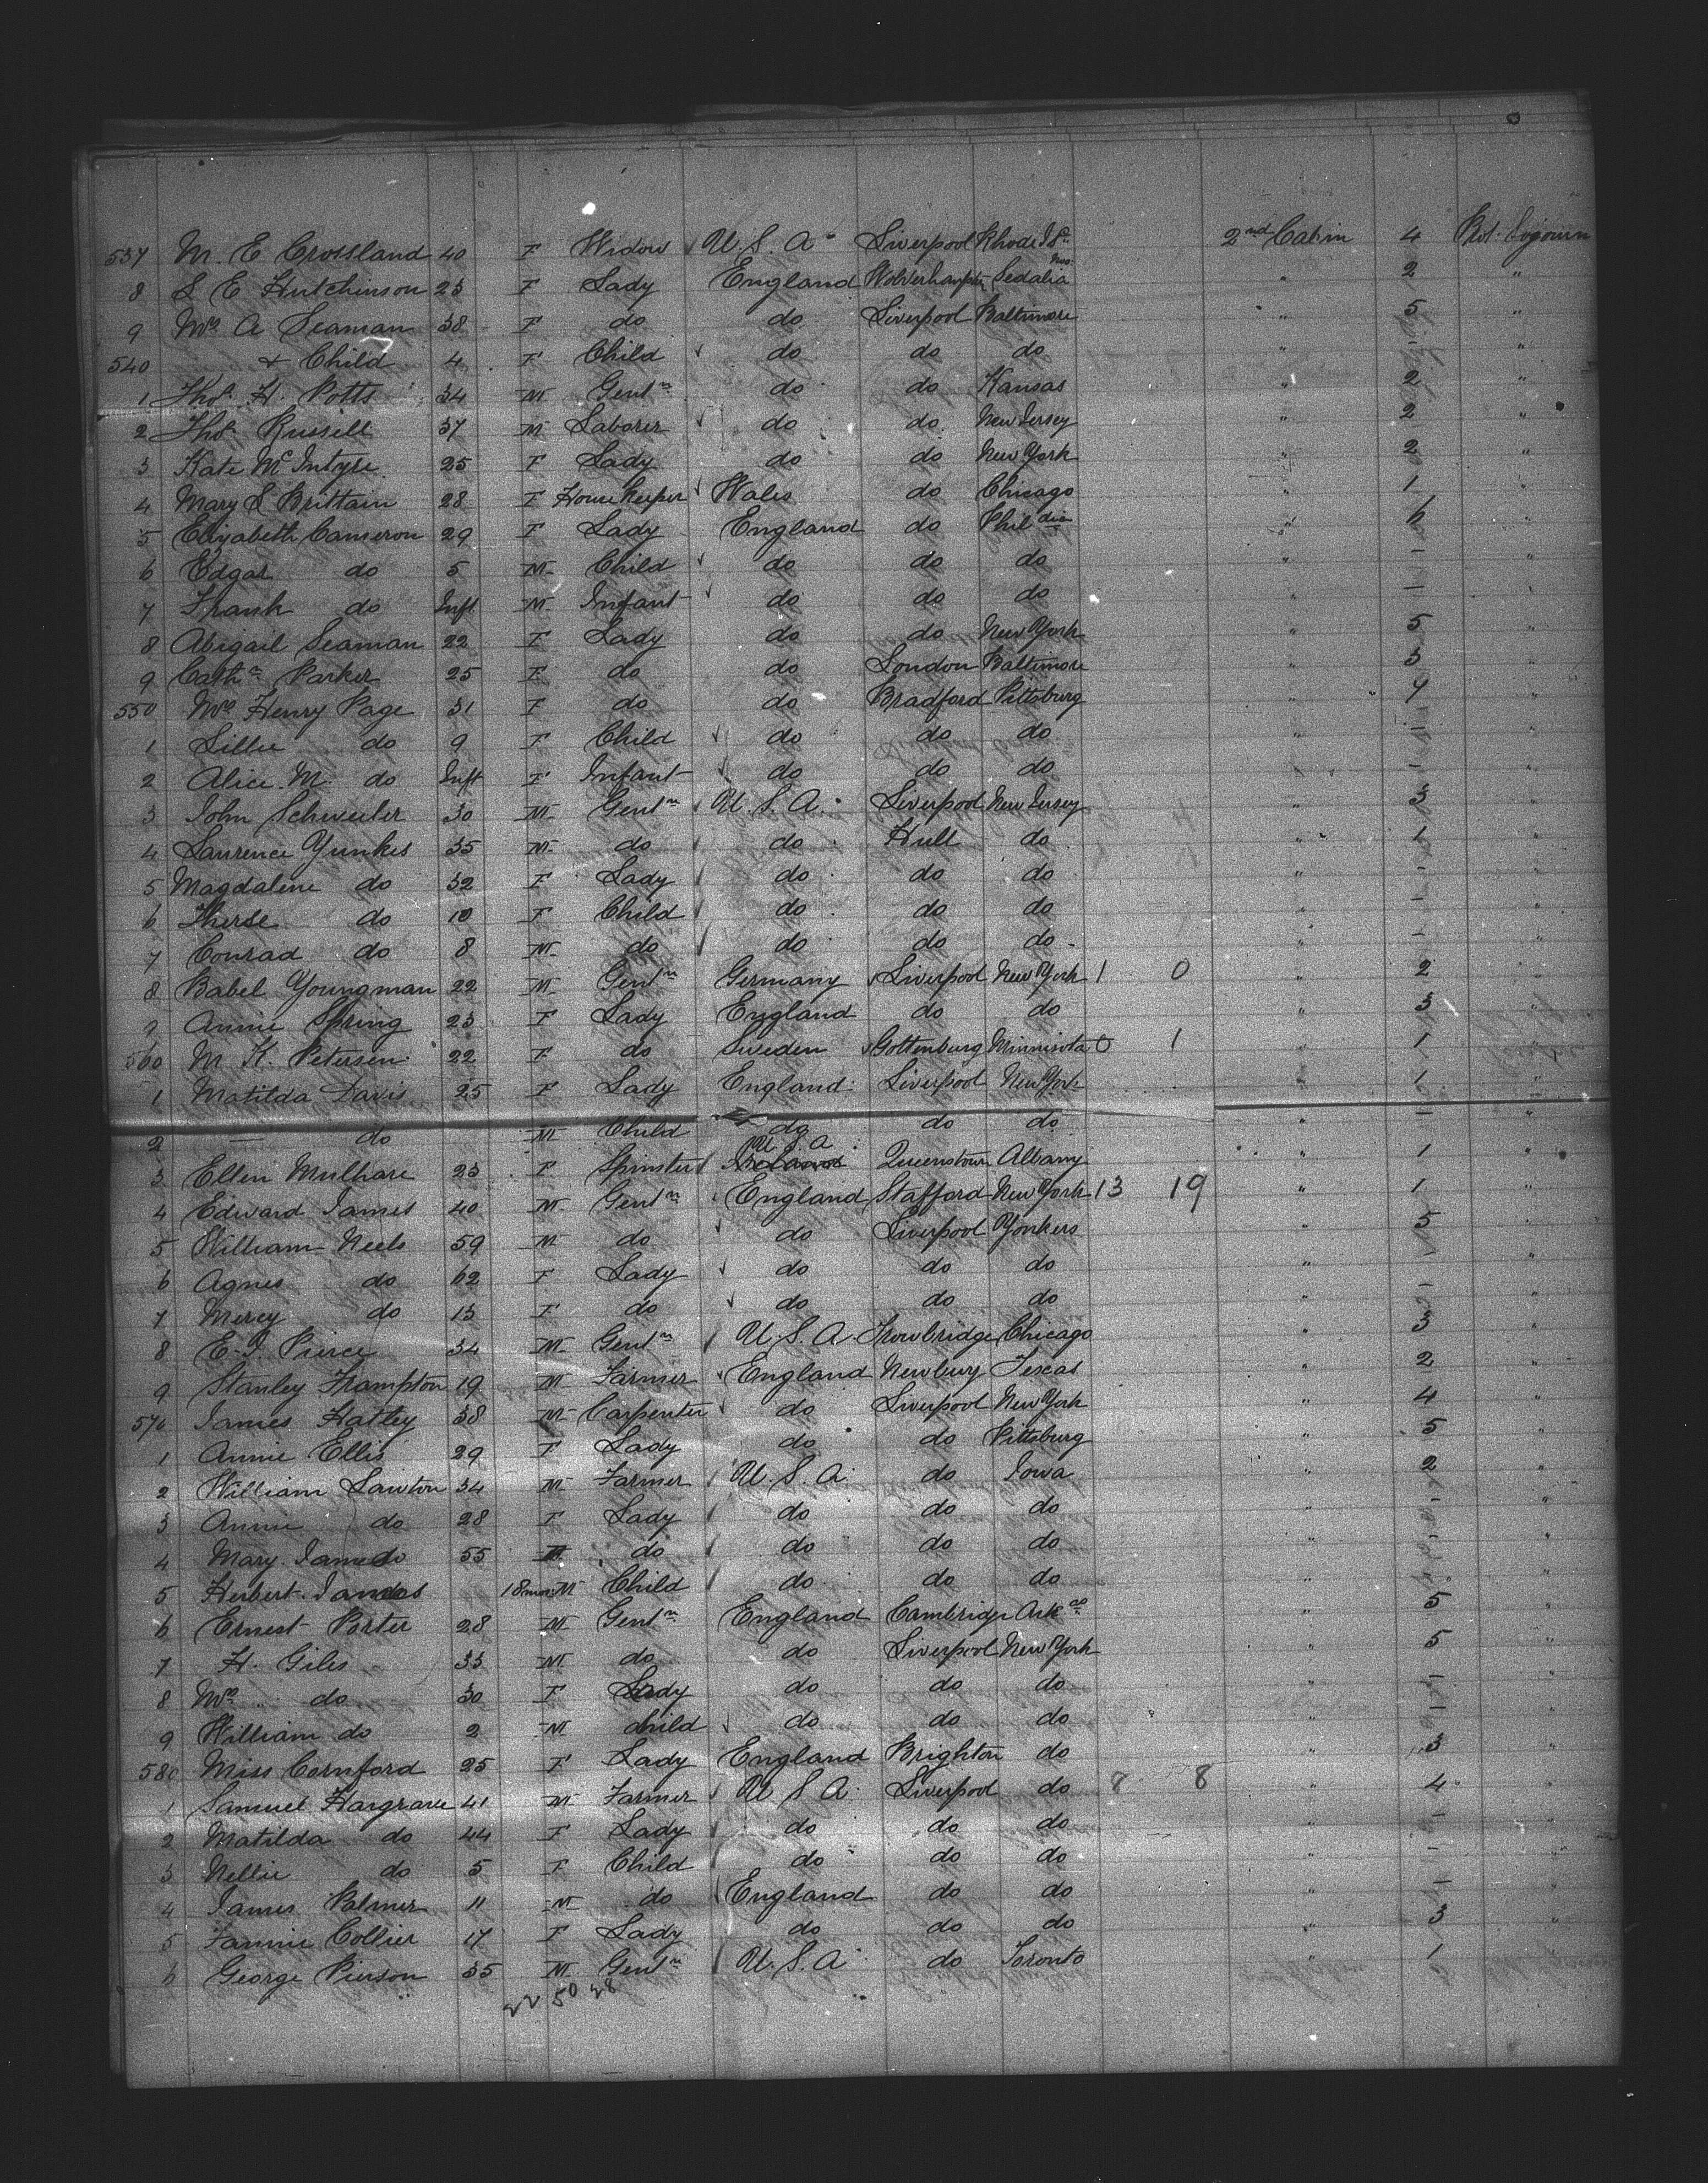 537 M. E Crossland 40 F Widow U. S. A Liverpool Rhode Isd 2nd Cabin 4 Prot. Sojourn
8 S E Hutchinson 23 F Lady England Wolverhampton Sedalia Mo 2 "
9 Mrs A Seaman 38 F do do Liverpool Baltimore " 5 "
540 & Child 4 F Child do do do " - "
1 Thos. H. Potts 34 M Gentn do do Kansas " 2 "
2 Thos. Russell 37 M Laborer do do New Jersey " 2 "
3 Kate McIntyre 25 F Lady do do New York " 2 "
4 Mary S Brittain 28 F Housekeeper Wales do Chicago " 1 "
5 Elizabeth Cameron 29 F Lady England do Phildia " 6 "
6 Edgar do 5 M Child do do do " - "
7 Frank do Inft M Infant do do do " - "
8 Abigail Seaman 22 F Lady do do New York " 5 "
9 Cathe Parker 25 F do do London Baltimore " 3 "
550 Mrs Henry Page 31 F do do Bradford Pittsburg " 4 "
1 Lillie do 9 F Child do do do " - "
2 Alice M do Inft F Infant do do do " - "
3 John Schweiler 30 M Gentn U. S. A. Liverpool New Jersey " 3 "
4 Laurence Yunkes 35 M do do Hull do " 1 "
5 Magdalene do 32 F Lady do do do " - "
6 Therse do 10 F Child do do do " - "
7 Conrad do 8 M do do do do " - "
8 Babel Youngman 22 M Gentn Germany Liverpool New York 1 0 " 2 "
9 Annie Spring 23 F Lady England do do " 3 "
560 M K. Petersen 22 F do Sweden Gottenburg Minnisota 0 1 " 1 "
1 Matilda Davis 25 F Lady England Liverpool New York " 1 "
2 — do M Child do do do " - "
3 Ellen Mulhare 23 F Spinster U S A Ireland Queenstown Albany " 1 "
4 Edward James 40 M Gentn England Stafford New York 13 19 " 1 "
5 William Neels 59 M do do Liverpool Yonkers " 5 "
6 Agnes do 62 F Lady do do do " - "
7 Mercy do 13 F do do do do " - "
8 E. J. Pierce 34 M Gentn U. S. A. Trowbridge Chicago " 3 "
9 Stanley Frampton 19 M Farmer England Newbury Texas " 2 "
570 James Hatley 38 M Carpenter do Liverpool New York " 4 "
1 Annie Ellis 29 F Lady do do Pittsburg " 5 "
2 William Lawton 34 M Farmer U. S. A. do Iowa " 2 "
3 Annie do 28 F Lady do do do " - "
4 Mary James do 55 do do do do " - "
5 Herbert James 18 mos M Child do do do " - "
6 Ernest Porter 28 M Gentn England Cambridge Arkas " 5 "
7 H. Giles 33 M do do Liverpool New York " 5 "
8 Mrs do 30 F Lady do do do " - "
9 William do 2 M child do do do " - "
580 Miss Cornford 25 F Lady England Brighton do " 3 "
1 Samuel Hargrave 41 M Farmer U S A Liverpool do 7 8 " 4 "
2 Matilda do 44 F Lady do do do " - "
3 Nellie do 5 F Child do do do " - "
4 James Palmer 11 M do England do do " - "
5 Fannie Collier 17 F Lady do do do " 3 "
6 George Pierson 35 M Gentn U. S. A do Toronto " 1 "
22 50 28